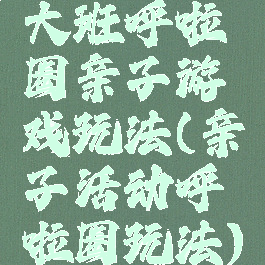 大班呼啦
圈亲子游
戏玩法(亲
子活动呼
啦圈玩法)